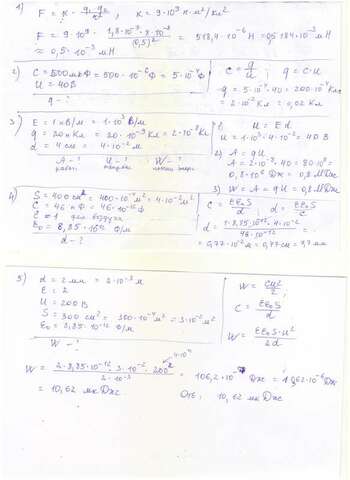 1) F = k · q₁ q₂ / r² , k = 9·10⁹ н·м²/кл²
F = 9·10⁹ · 1,8·10⁻⁹ · 8·10⁻⁹ / (0,5)² = 518,4·10⁻⁶ Н = 0,5184·10⁻³ мН
≈ 0,5·10⁻³ мН
2) C = 500 мкФ = 500·10⁻⁶ Ф = 5·10⁻⁴ Ф
U = 40 В
q - ?
C = q/U , q = C·U
q = 5·10⁻⁴ · 40 = 200·10⁻⁴ Кл
= 2·10⁻² Кл = 0,02 Кл
3) E = 1 кВ/м = 1·10³ В/м
q = 20 нКл = 20·10⁻⁹ Кл = 2·10⁻⁸ Кл
d = 4 см = 4·10⁻² м
A - ? U - ? W - ?
1) U = Ed
U = 1·10³ · 4·10⁻² = 40 В
2) A = qU
A = 2·10⁻⁸ · 40 = 80·10⁻⁸
= 0,8·10⁻⁶ Дж = 0,8 МДж
3) W = A = qU = 0,8 МДж
4) S = 400 см² = 400·10⁻⁴ м² = 4·10⁻² м²
C = 46 пФ = 46·10⁻¹² Ф
ε = 1 для воздуха
ε₀ = 8,85·10⁻¹² Ф/м
d - ?
C = εε₀S / d , d = εε₀S / C
d = 1·8,85·10⁻¹² · 4·10⁻² / 46·10⁻¹² =
= 0,77·10⁻² м = 0,77 см = 7,7 мм
5) d = 2 мм = 2·10⁻³ м
ε = 2
U = 200 В
S = 300 см² = 300·10⁻⁴ м² = 3·10⁻² м²
ε₀ = 8,85·10⁻¹² Ф/м
W - ?
W = CU² / 2 ,
C = εε₀S / d
W = εε₀S·U² / 2d
W = 2·8,85·10⁻¹² · 3·10⁻² · 200² / 2·2·10⁻³ = 106,2·10⁻⁷ Дж = 10,62·10⁻⁶ Дж
= 10,62 мкДж Отв: 10,62 мкДж